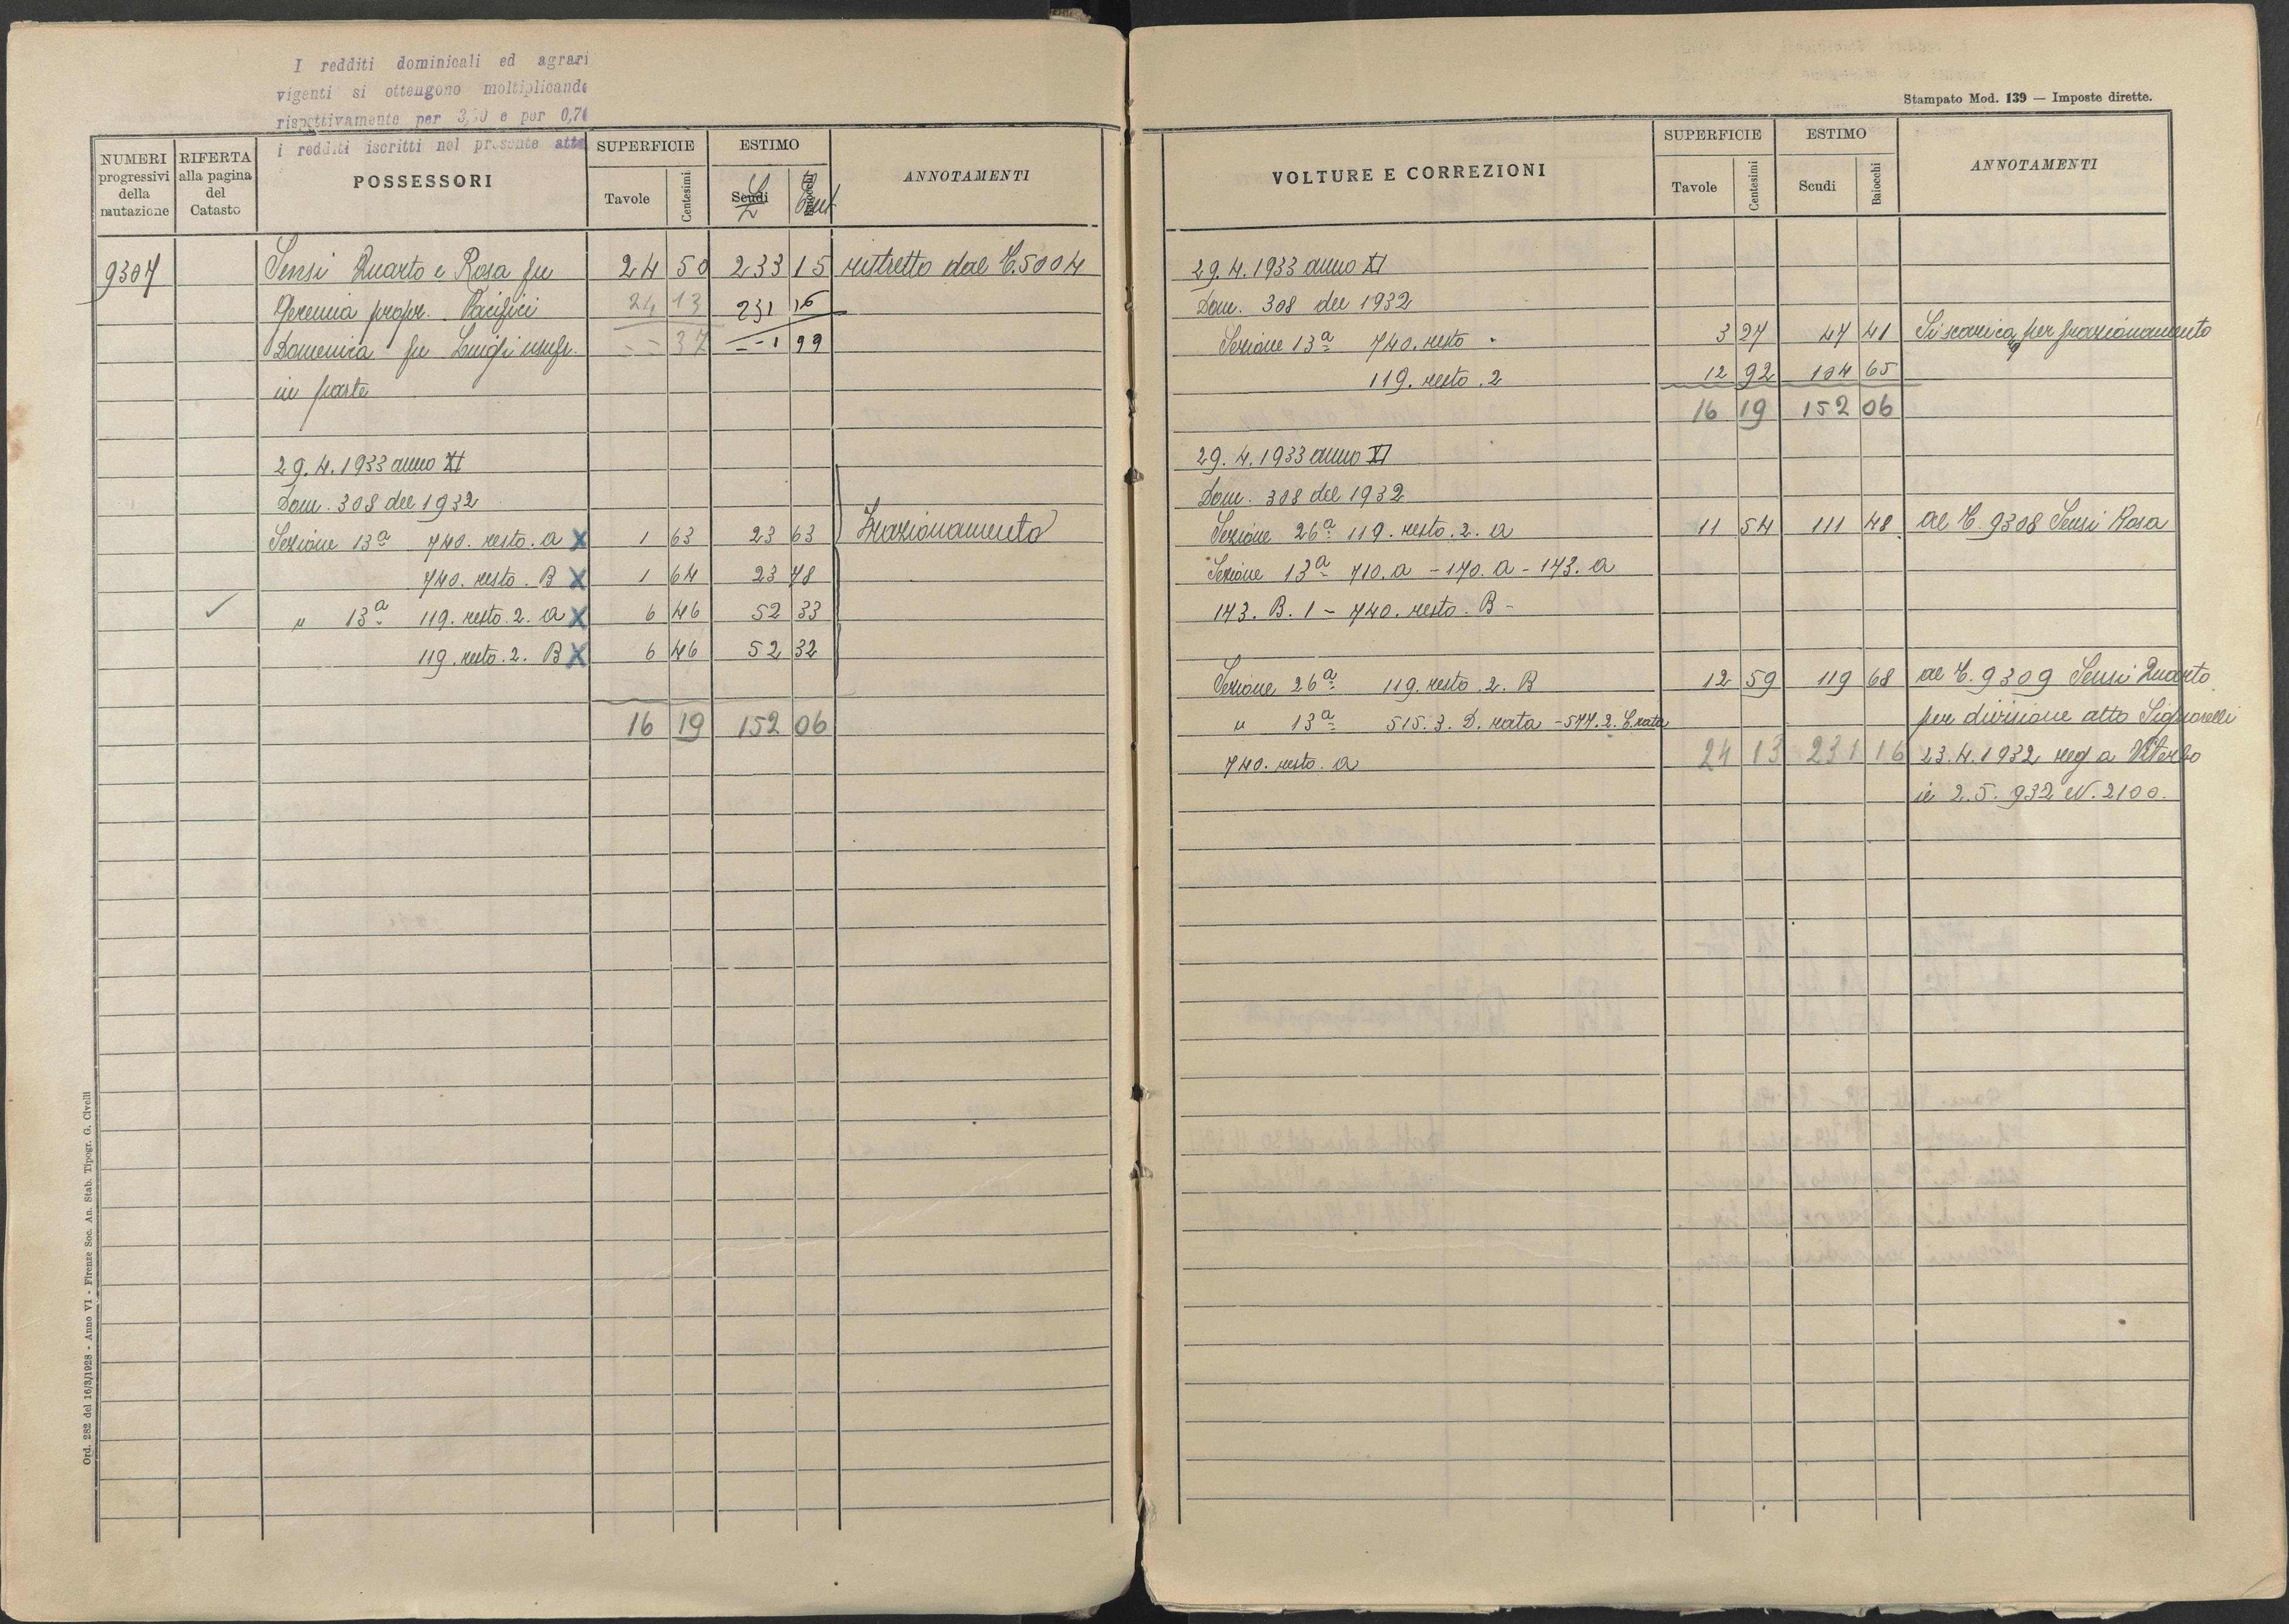 I redditi dominicali ed agrari
vigenti si ottengono moltiplicando
rispettivamente per 3,50 e per 0,70
i redditi iscritti nel presente atto
NUMERI progressivi della mutazione
RIFERTA alla pagina del Catasto
POSSESSORI
SUPERFICIE
Tavole Centesimi
ESTIMO
Scudi Baiocchi
L Cent
ANNOTAMENTI
9307 Sensi Quarto e Rosa fu 24 50 233 15 ristretto dal C. 5004
Geremia propr. Pacifici 24 13 231 16
Domenica fu Luigi usufr. -- 37 --1 99
in parte
29.4.1933 anno XI
Dom. 308 del 1932
Sezione 13ª 740. resto. a X 1 63 23 63 Frazionamento
740. resto. B X 1 64 23 78
" 13ª 119. resto. 2. a X 6 46 52 33
119. resto. 2. B X 6 46 52 32
16 19 152 06
Ord. 282 del 16/3/1928 - Anno VI - Firenze Soc. An. Stab. Tipogr. G. Civelli
Stampato Mod. 139 — Imposte dirette.
VOLTURE E CORREZIONI
SUPERFICIE
Tavole Centesimi
ESTIMO
Scudi Baiocchi
ANNOTAMENTI
29.4.1933 anno XI
Dom. 308 del 1932
Sezione 13ª 740. resto 3 27 47 41 Si scarica per frazionamento
119. resto. 2 12 92 104 65
16 19 152 06
29.4.1933 anno XI
Dom. 308 del 1932
Sezione 26ª 119. resto. 2. a 11 54 111 48 al C. 9308 Sensi Rosa
Sezione 13ª 710. a - 170. a - 173. a
173. B. 1 - 740. resto. B -
Sezione 26ª 119. resto. 2. B 12 59 119 68 al C. 9309 Sensi Quarto
" 13ª 515. 3. D. rata - 577. 2. C. rata per divisione atto Signorelli
740. resto. a 24 13 231 16 23.4.1932 reg a Viterbo
il 2.5.932 N. 2100.